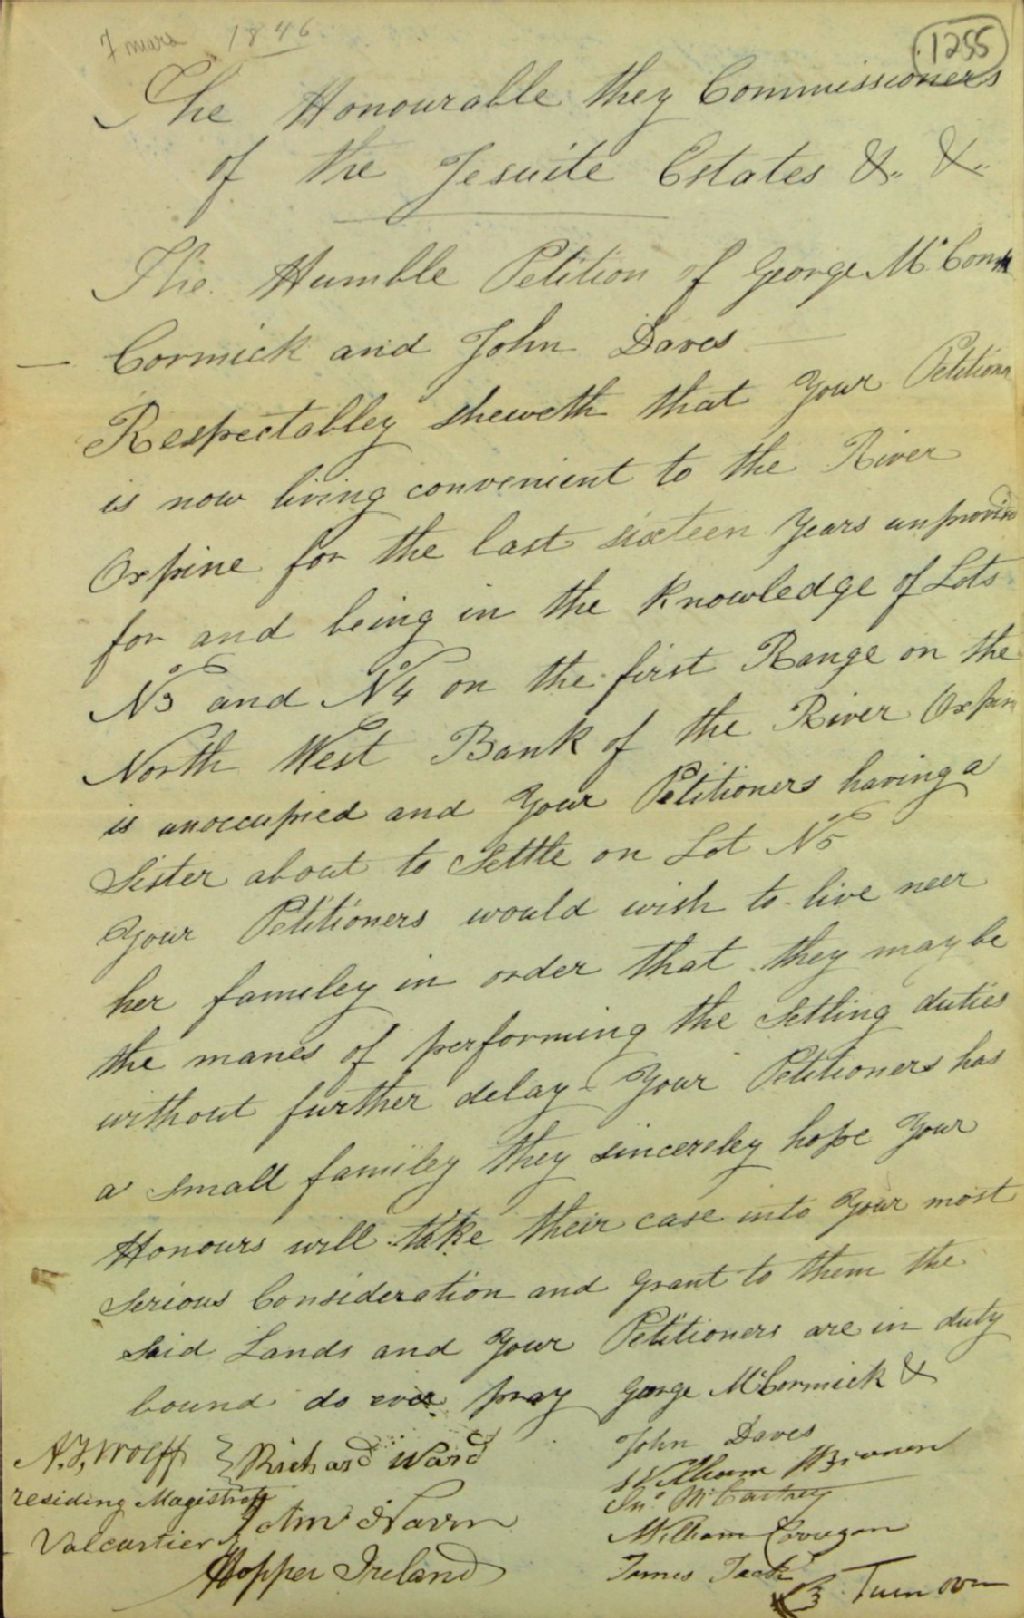 7 mars 1846
1255
The Honourable they Commissioners
of the Jesuite Estates &.. &..
The Humble Petition of George Mc. Corm
Cormick and John Daves
Respectabley sheweth that Your Petitionr
is now living convenient to the River
Oxpine for the last sixteen Years unprovid
for and being in the Knowledge of Lots
No 3 and No 4 on the first Range on the
North West Bank of the River Oxpin
is unoccupied and Your Petitioners having a
Sister about to Settle on Lot No 5
Your Petitioners would wish to live neer
her fameley in order that they may be
the manes of performing the Setling duties
without further delay Your Petitioners has
a small familey they sincereley hope Your
Honours will take their case into Your most
Serious Consideration and grant to them the
Said Lands and Your Petitioners are in duty
bound do ever pray George McCormick &
John Daves
A.J. Wolff } Richard Ward
William
residing Magistrate
Jno. McCartney
Valcartier
John
William
Hopper Ireland
James
Turn over